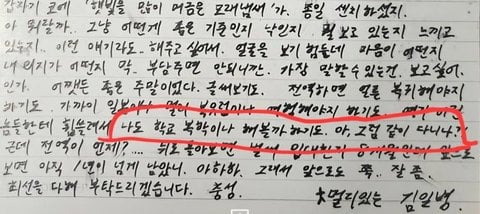 갑자기 코에 '햇빛을 많이 머금은 모래냄새'가, 종일 센치하셨지.
아 뭐랄까.. 그냥 어떻게 좋은 기준인지 낙인지 뭘 보고 있는지 느끼고
있는지.. 이런 얘기라도, 해주고 싶어서. 얼굴을 보기 힘들데 마음이 어떤지
내 의지가 어떤지 막. 부담주면 안되니깐. 가장 말할수 있는건. 보고싶어.
인가. 어쨌든 좋은 주말이었다. 글써보기도. 전역하면 얼른 복귀해야지
하기도. 가까이 일본에나 멀리 북유럽이나 여행해야지 하기도.
놈들한테 휩쓸려서 나도 학교 복학이나 해볼까 하기도. 아, 그럼 같이 다니나?
근데 전역이 언제?... 뒤로 돌아보면 벌써 입대한지 8개월인데 앞으로
보면 아직 1년이 넘게 남았니. 아하하. 그래서 앞으로도 쭉. 잘 좀.
최선을 다해 부탁드리겠습니다. 충성.
멀리있는 김일병